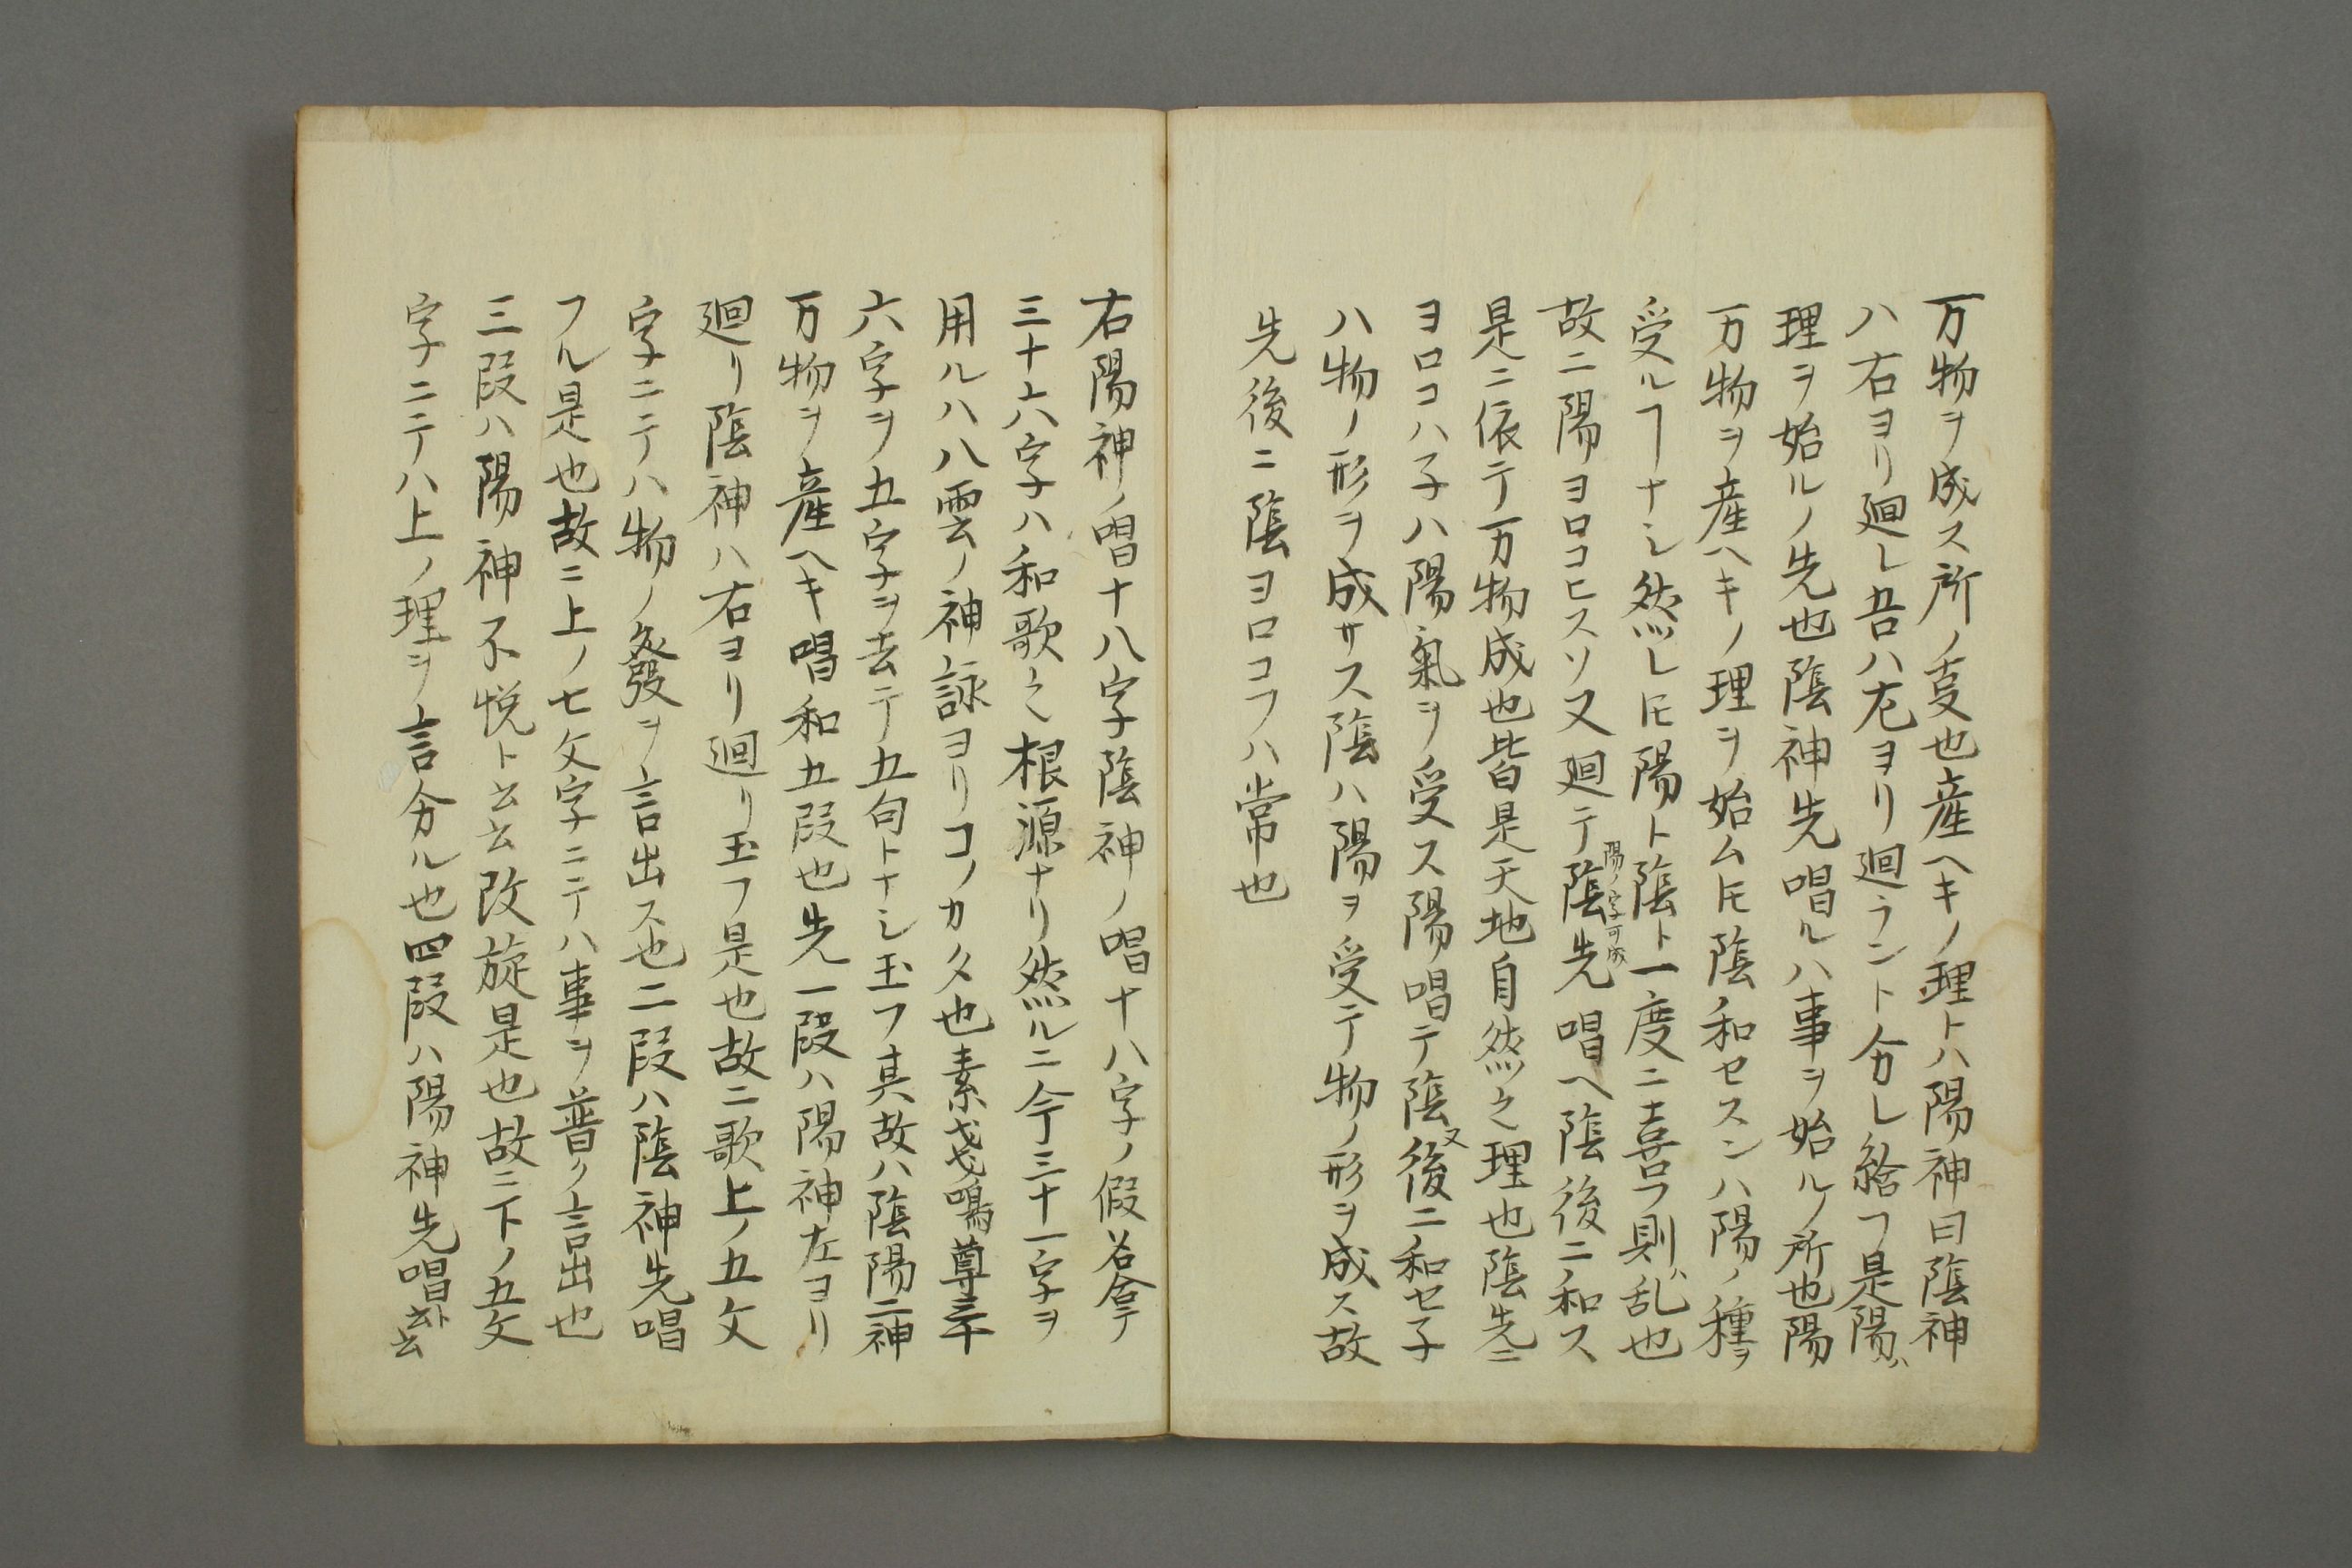 万物ヲ成ス所ノ㕝也産ヘキノ理トハ陽神曰陰神
ハ右ヨリ廻レ吾ハ左ヨリ廻ラント分レ給フ是陽ハ
理ヲ始ルノ先也陰神先唱ルハ事ヲ始ルノ所也陽
万物ヲ産ヘキノ理ヲ始ムㇳモ陰和セスンハ陽ノ種ヲ
受ルヿナシ然レㇳモ陽ト陰ト一度ニ喜フ則ハ乱也
故ニ陽ヨロコヒスソ又廻テ陰先唱ヘ陰後ニ和ス
陽ノ字可成
是ニ依テ万物成也皆是天地自然之理也陰先ニ
ヨロコハ子ハ陽氣ヲ受ス陽唱テ陰又後ニ和セ子
ハ物ノ形ヲ成サス陰ハ陽ヲ受テ物ノ形ヲ成ス故
先後ニ陰ヨロコフハ常也
右陽神ノ唱十八字陰神ノ唱十八字ノ假名合テ
三十六字ハ和歌之根源ナリ然ルニ今三十一字ヲ
用ルハ八雲ノ神詠ヨリコノカタ也素戔嗚尊三十
六字ヲ五字ヲ去テ五句トナシ玉フ其故ハ陰陽二神
万物ヲ産ヘキ唱和五段也先一段ハ陽神左ヨリ
廻リ陰神ハ右ヨリ廻リ玉フ是也故ニ歌上ノ五文
字ニテハ物ノ發ヲ言出ス也二段ハ陰神先唱
フル是也故ニ上ノ七文字ニテハ事ヲ普ク言出也
三段ハ陽神不悦ト云云改旋是也故ニ下ノ五文
字ニテハ上ノ理ヲ言分ル也四段ハ陽神先唱ト云云